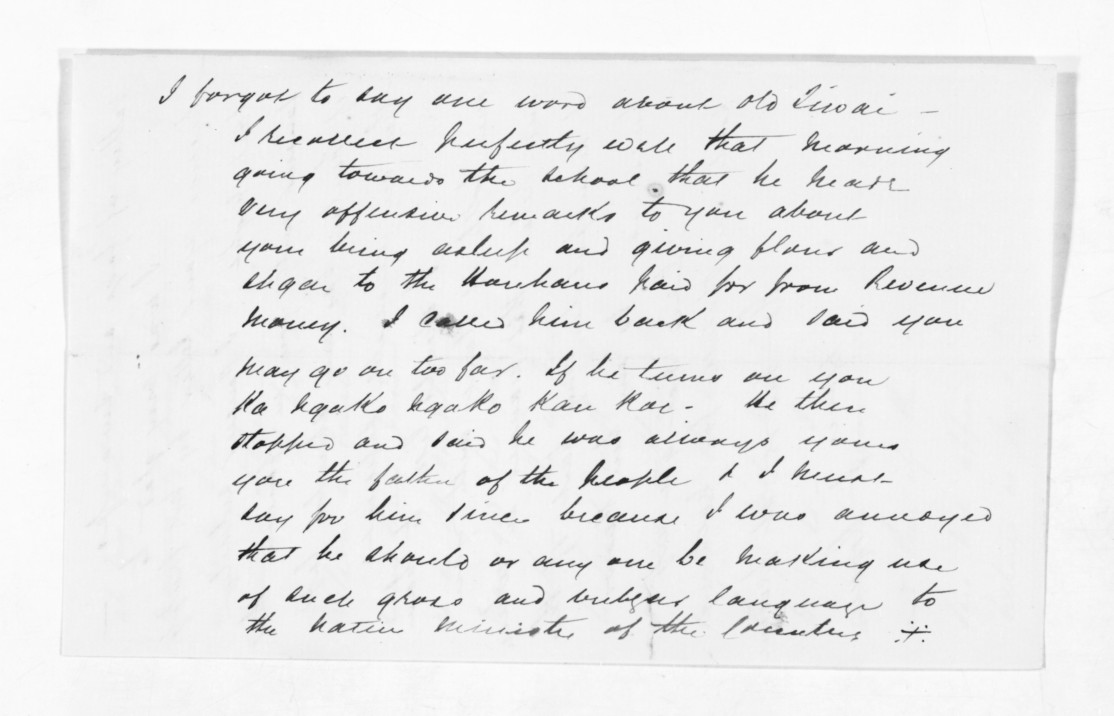 I forgot to say one word about old Tiwai -
I recollect perfectly well that morning
going towards the school that he made
very offensive remarks to you about
your being asleep and giving flour and
sugar to the Hauhaus paid for from Revenue
money. I called him back and said you
may go on too far. If he turns on you
Ka ngako ngako Kau Koe - He then
stopped and said he was always yours
you the father of the people & I must
say for him since because I was annoyed
that he should or any one be making use
of such gross and vulgar language to
the Native Minister of the Country